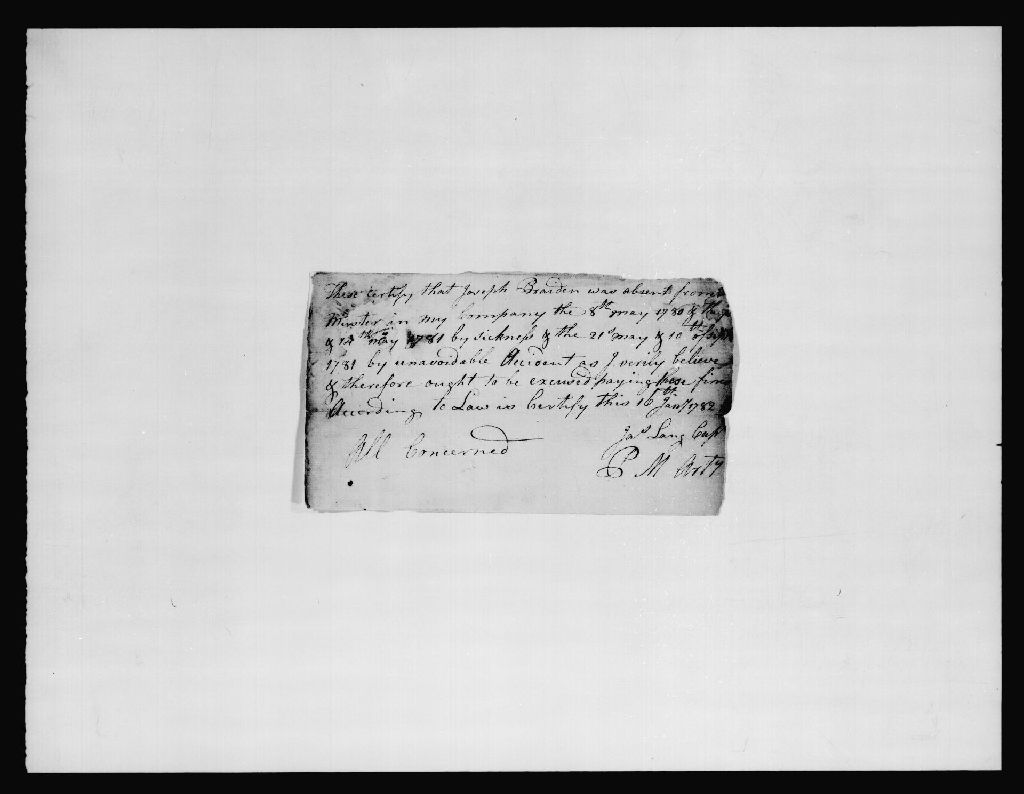 These certify that Joseph Braiden was absent from
Muster in my Company the 8th may 1780 & the
& 14th may 1781 by sickness & the 21st may & 10th of
1781 by unavoidable Accident as I verily believe
& therefore ought to be excused paying these fines
According to Law is Certify this 16th Jany 1782
Jas Lang Capt
All Concerned
P M Arty